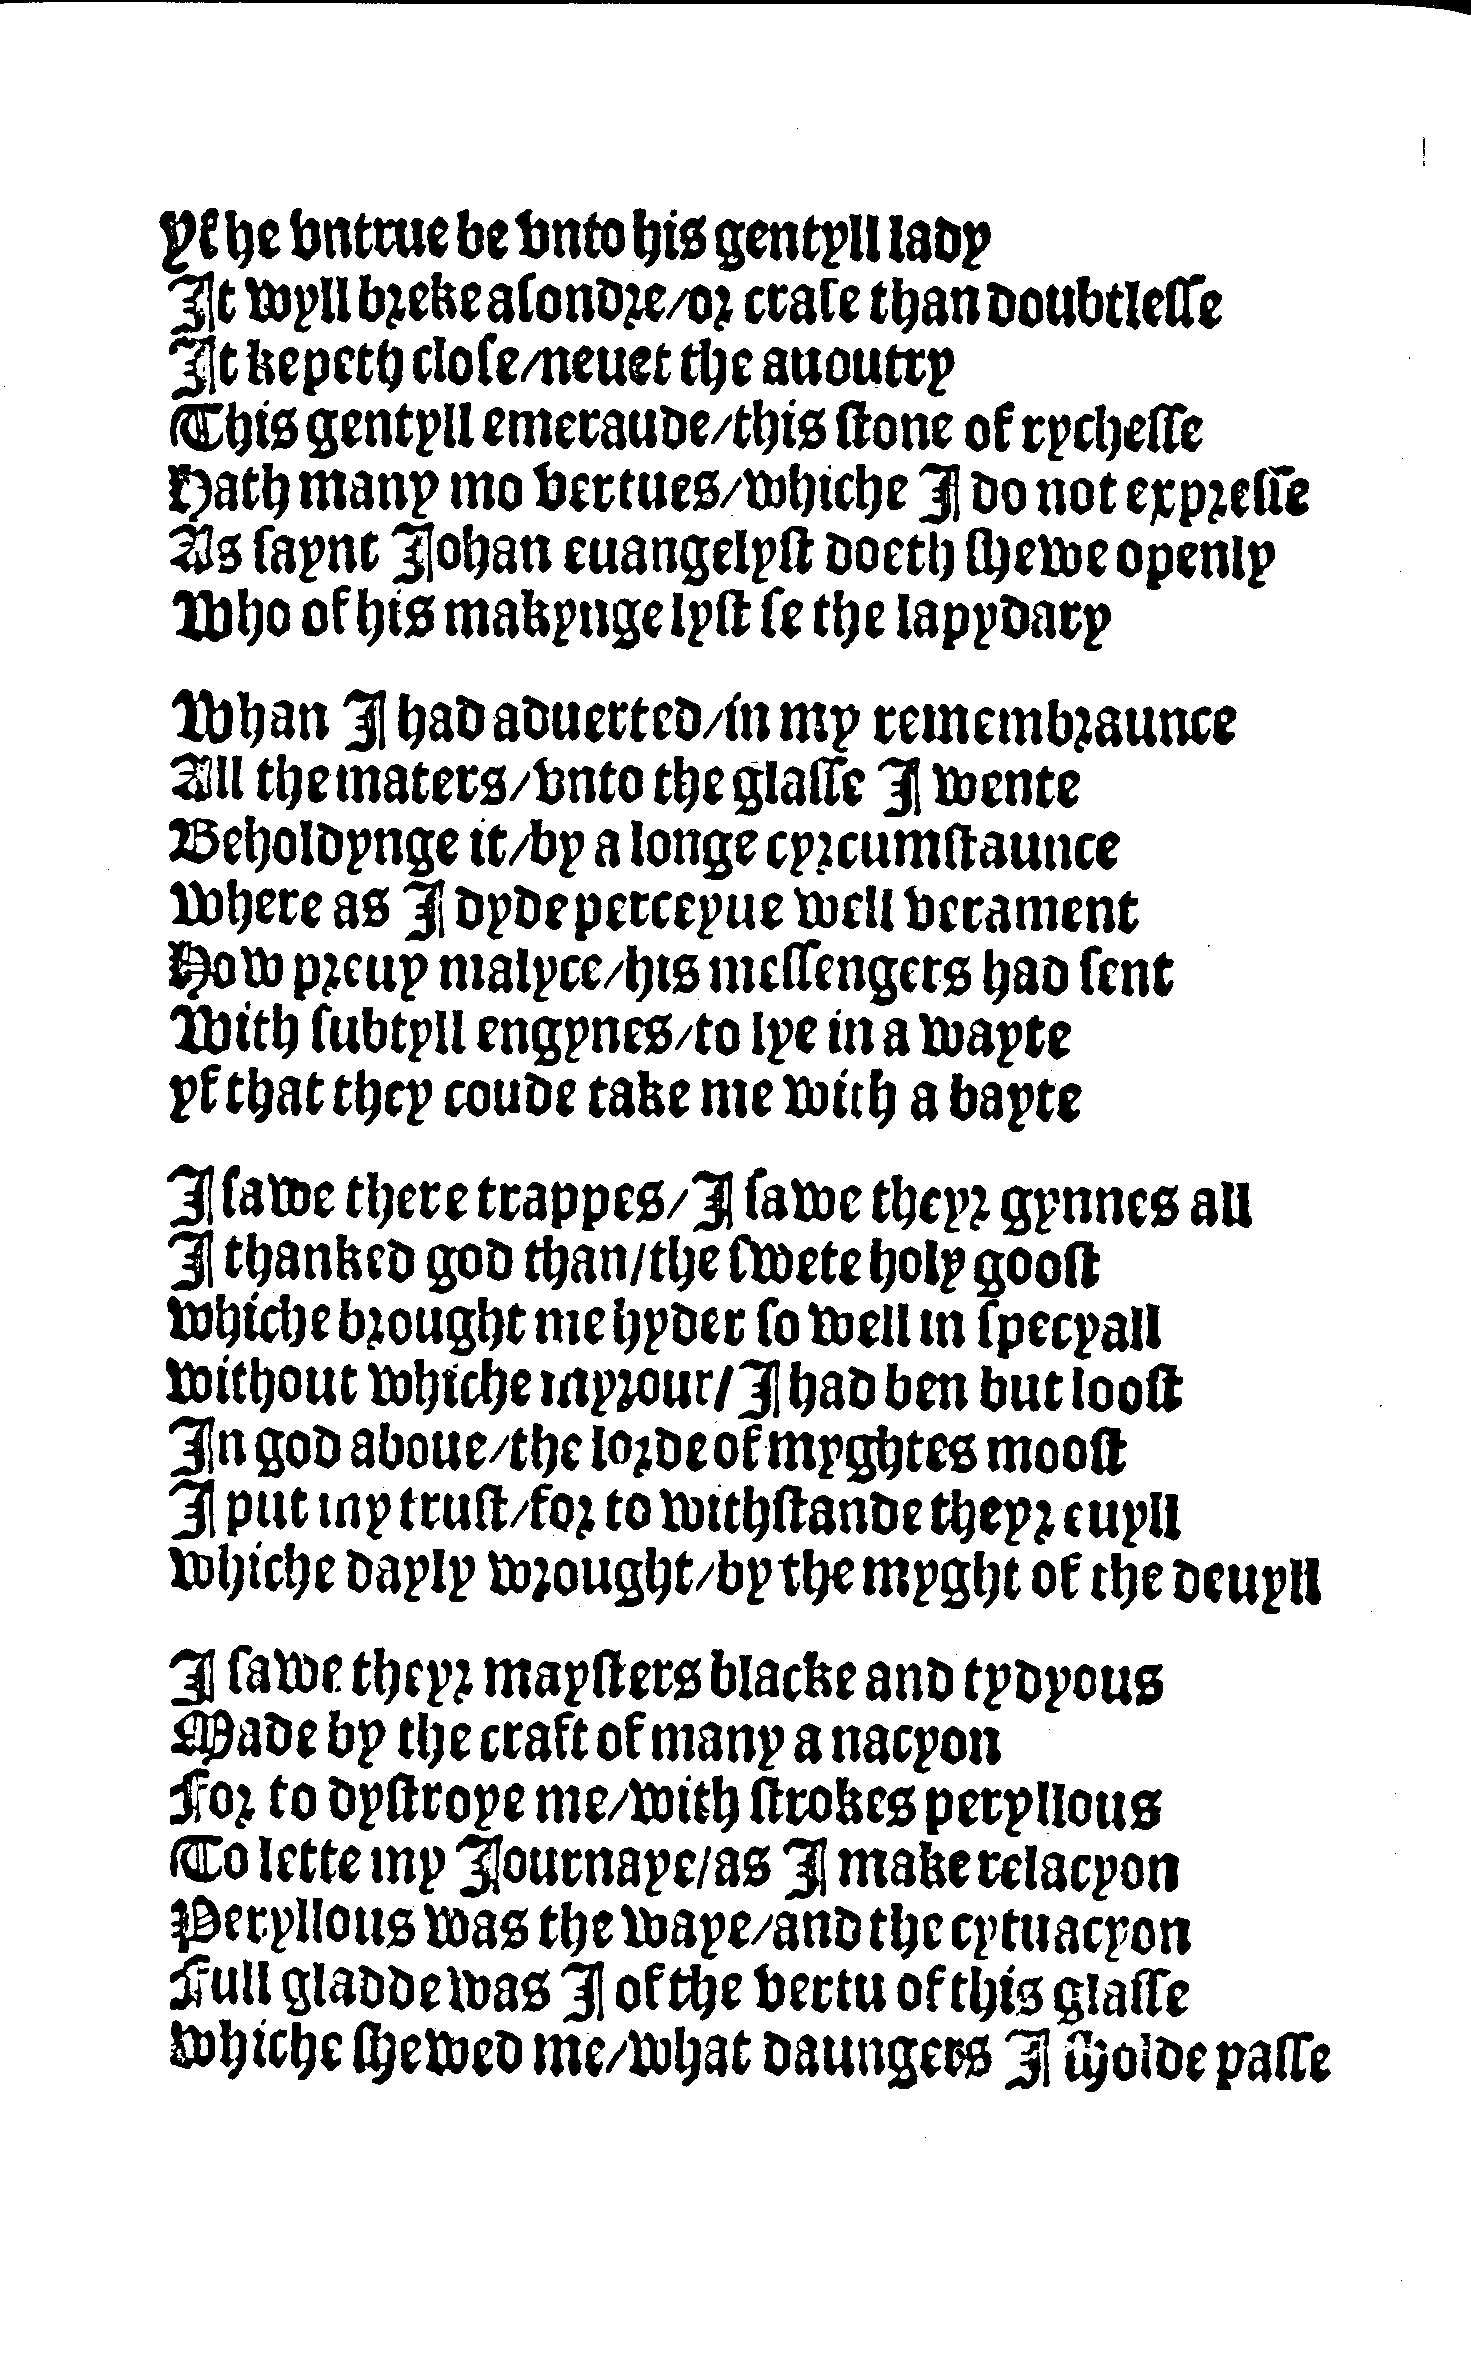 Yf he vntrue be vnto his gentyll lady
It wyll bꝛeke aſondꝛe/oꝛ craſe than doubtleſſe
It kepeth cloſe/neuet the auoutry
This gentyll emeraude/this ſtone of rycheſſe
Hath many mo vertues/whiche I do not expꝛeſſe
As ſaynt Johan euangelyſt doeth ſhewe openly
Who of his makynge lyſt ſe the lapydary

Whan I had aduerted/in my remembꝛaunce
All the maters/vnto the glaſſe I wente
Beholdynge it/by a longe cyꝛcumſtaunce
Where as I dyde perceyue well verament
How pꝛeuy malyce/his meſſengers had ſent
With ſubtyll engynes/to lye in a wayte
yf that they coude take me with a bayte

I ſawe there trappes/I ſawe theyꝛ gynnes all
I thanked god than/the ſwete holy gooſt
whiche bꝛought me hyder ſo well in ſpecyall
without whiche myꝛour/I had ben but looſt
In god aboue/the loꝛde of myghtes mooſt
I put my truſt/foꝛ to withſtande theyꝛ euyll
whiche dayly wꝛought/by the myght of the deuyll

I ſawe theyꝛ mayſters blacke and tydyous
Made by the craft of many a nacyon
Foꝛ to dyſtroye me/with ſtrokes peryllous
To lette my Journaye/as I make relacyon
Peryllous was the waye/and the cytuacyon
Full gladde was I of the vertu of this glaſſe
whiche ſhewed me/what daungers I ſholde paſſe